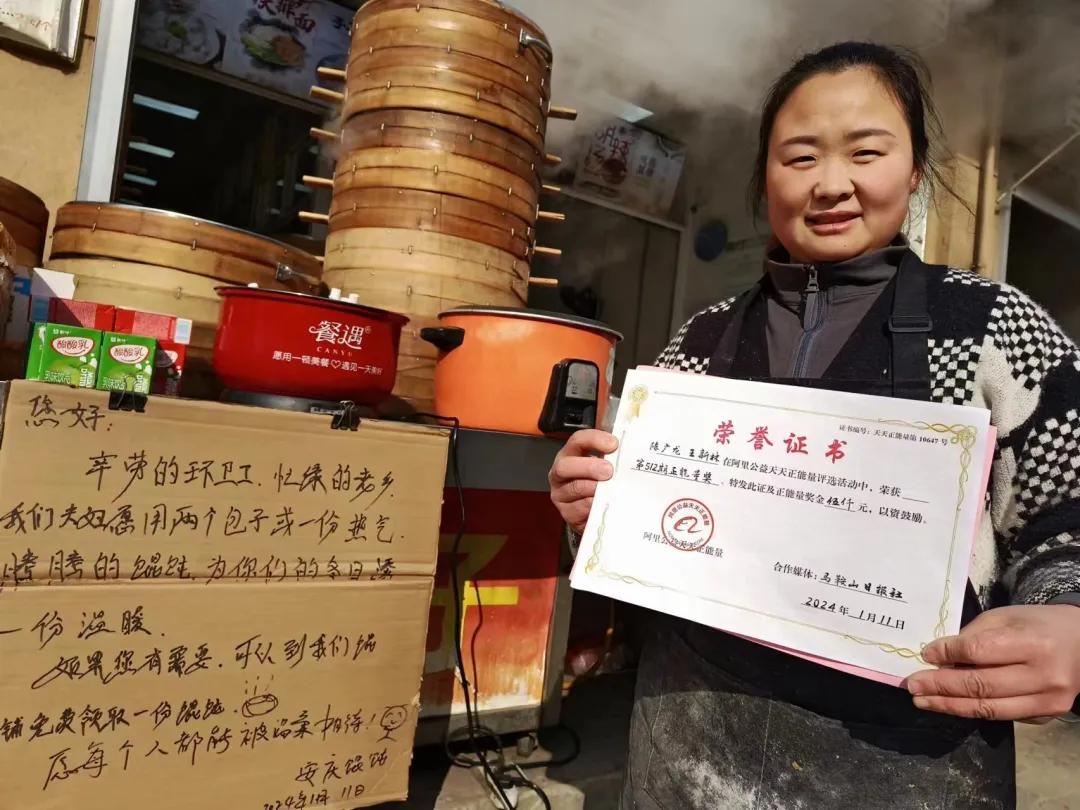 您好:
辛劳的环卫工、忙绿的老乡
我们夫妇愿用两个包子或一份热气
腾腾的馄饨.为你们的冬日添
一份温暖.
如果您有需要.可以到我们馄
铺免费领取一份馄饨.
愿每个人都能被温柔相待!
安庆馄饨
2024年1月11日
酸酸乳
酸酸乳
乳味饮品
餐遇®
CANYU
愿用一顿美餐♡遇见一天美好
证书编号:天天正能量第 10647 号
荣誉证书
陈广龙 王新林 在阿里公益天天正能量评选活动中,荣获
第512期正能量奖 、特发此证及正能量奖金 伍仟 元,以资鼓励。
阿里公益天天正能量
合作媒体:马鞍山日报社
2024 年 1 月 11 日